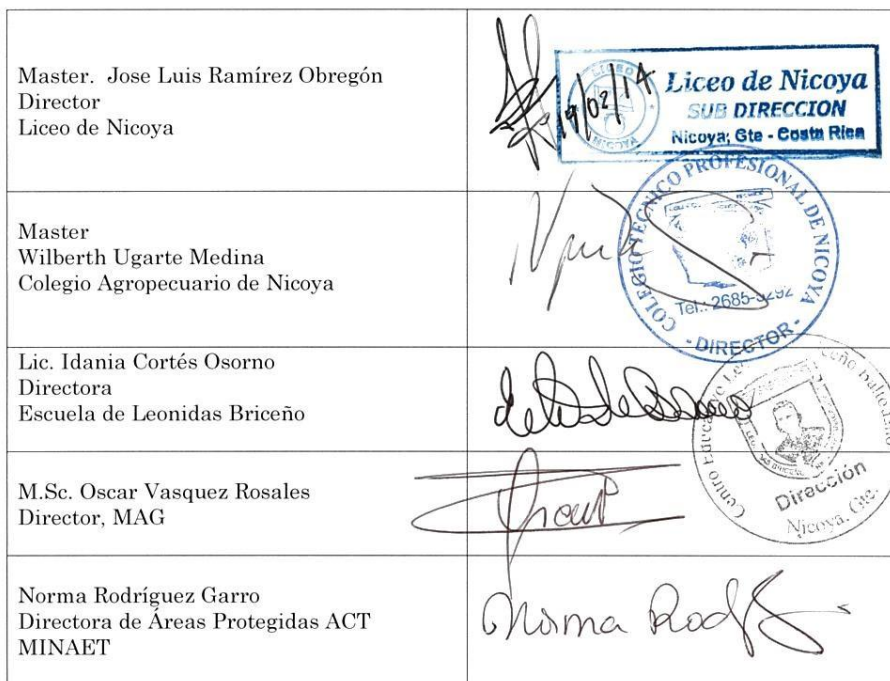 Master. Jose Luis Ramírez Obregón
Director
Liceo de Nicoya
19/02/14
LICEO
Liceo de Nicoya
SUB DIRECCION
Nicoya; Gte - Costa Rica
Master
Wilberth Ugarte Medina
Colegio Agropecuario de Nicoya
COLEGIO TECNICO PROFESIONAL DE NICOYA
Tel.: 2685-
- DIRECTOR -
Lic. Idania Cortés Osorno
Directora
Escuela de Leonidas Briceño
Centro Educativo
Dirección
Nicoya, Gte.
M.Sc. Oscar Vasquez Rosales
Director, MAG
Norma Rodríguez Garro
Directora de Áreas Protegidas ACT
MINAET
Norma Rod